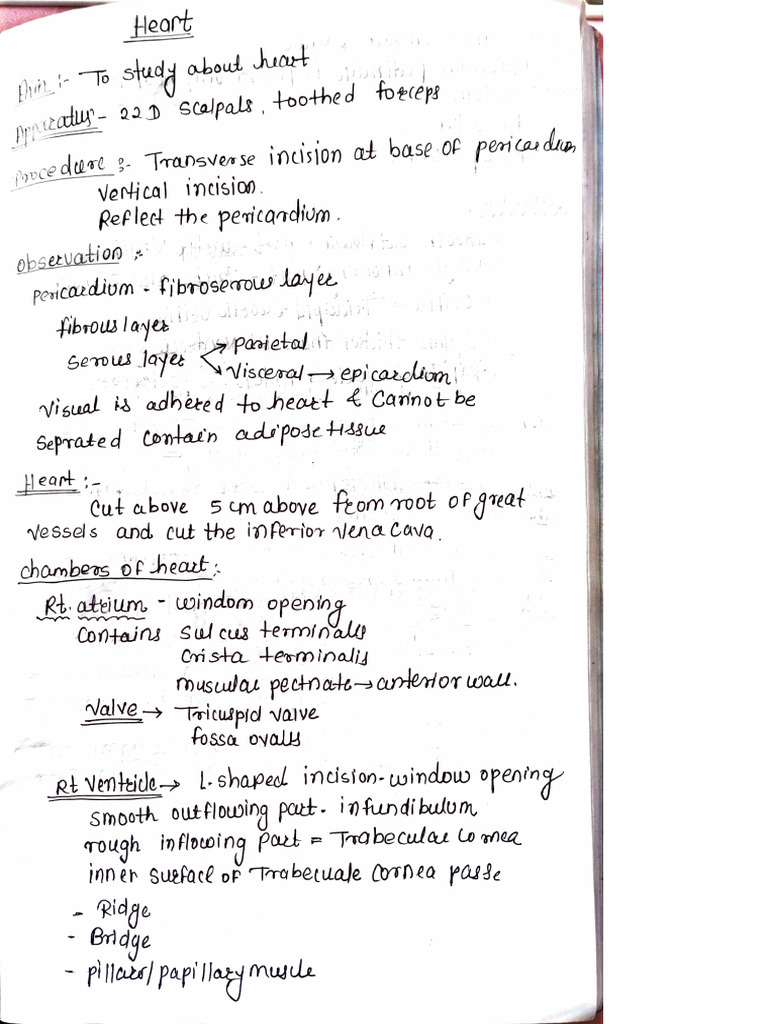 Heart
Aim :- To study about heart
Apparatus - 22 D scalpals, toothed forceps
Procedure :- Transverse incision at base of pericardium
Vertical incision.
Reflect the pericardium.
Observation :-
Pericardium - fibroserous layer
fibrous layer
Serous layer → Parietal
→ Visceral → epicardium
Visual is adhered to heart & Cannot be
Seprated contain adipose tissue
Heart :-
Cut above 5 cm above from root of great
vessels and cut the inferior vena cava.
Chambers of heart :-
Rt. atrium - windom opening
Contains Sulcus terminalis
Crista terminalis
muscular pectnate → anterior wall.
Valve → Tricuspid valve
fossa ovalis
Rt Ventricle → L-shaped incision - window opening
smooth outflowing part - infundibulum
rough inflowing Part = Trabecular Cornea
inner surface of Trabecuale Cornea passe
- Ridge
- Bridge
- pillars/papillary muscle